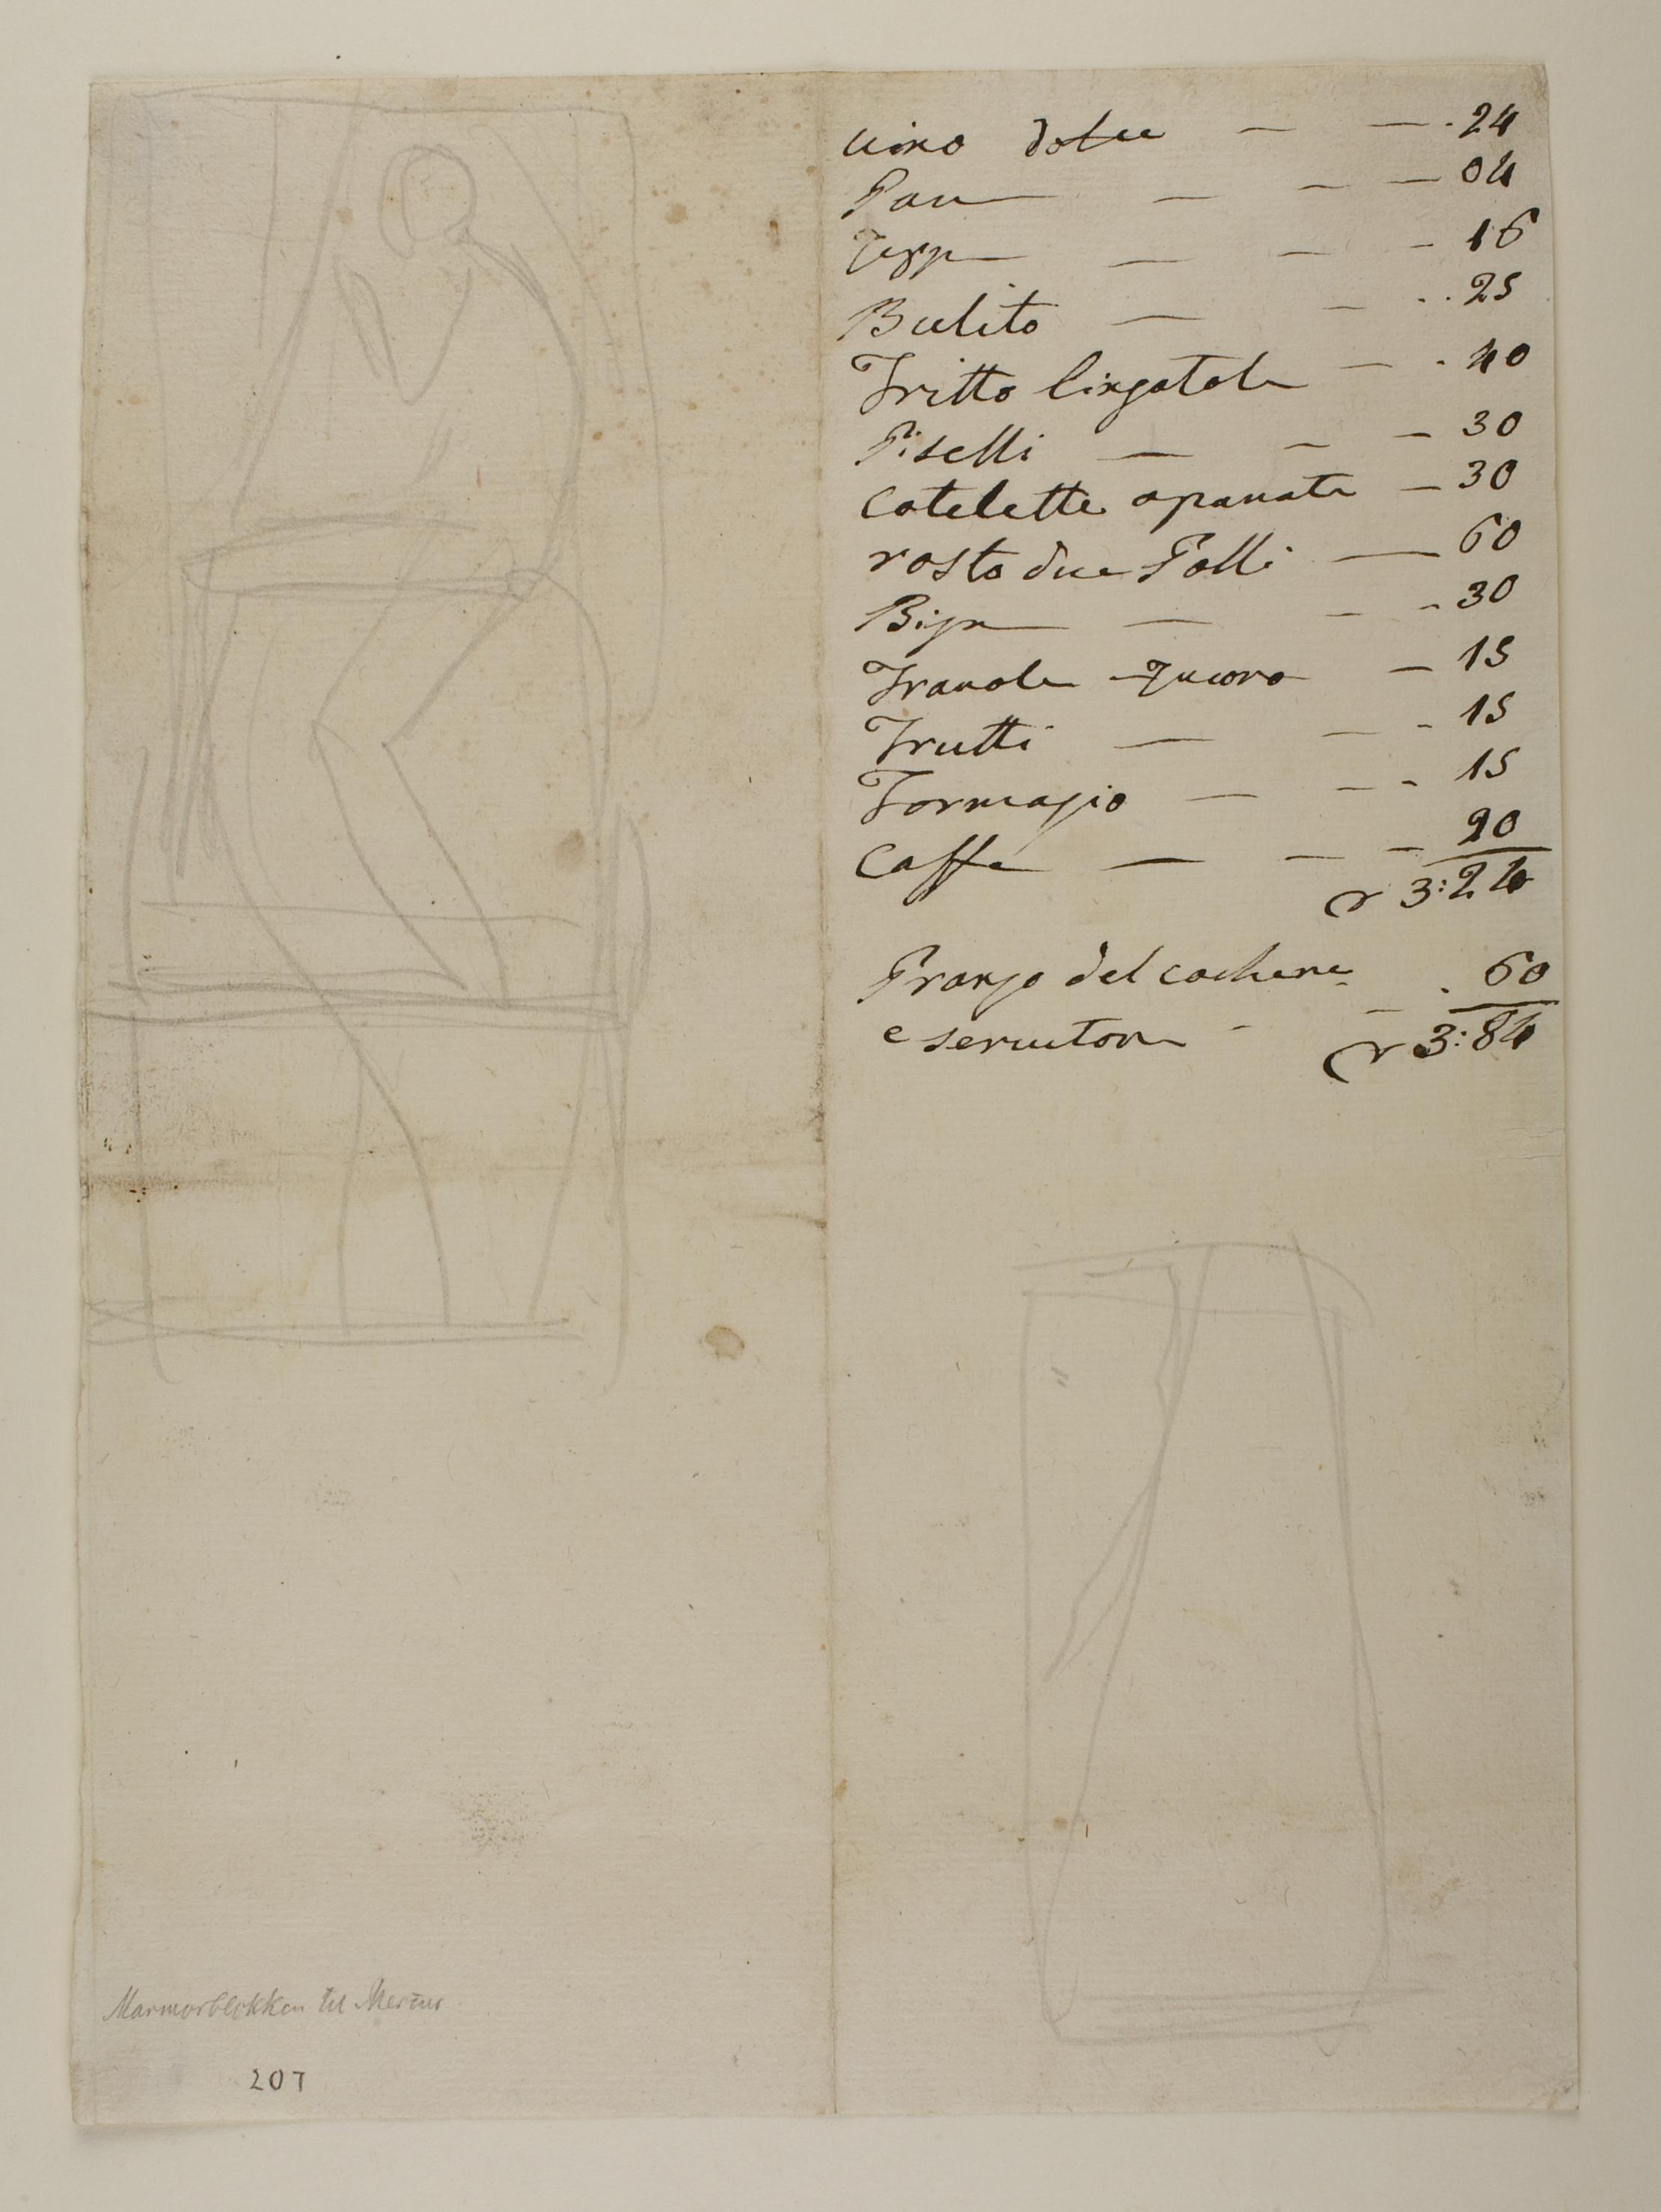 vino dolce — — . 24
Pane — — 04
Zuppe — — - 16
Bulito — — . . 25
Fritto lingatole — . 40
Piselli — — — 30
Cotelette apanate — 30
rosto due Polli — 60
Bige — — - 30
Fravole Zucoro — 15
Frutti — — - 15
Formagio — — - 15
Caffe — — — 20
3:24
Pranzo del cochere . 60
e servitore - — 3:84
Marmorblokken til Mercur
207